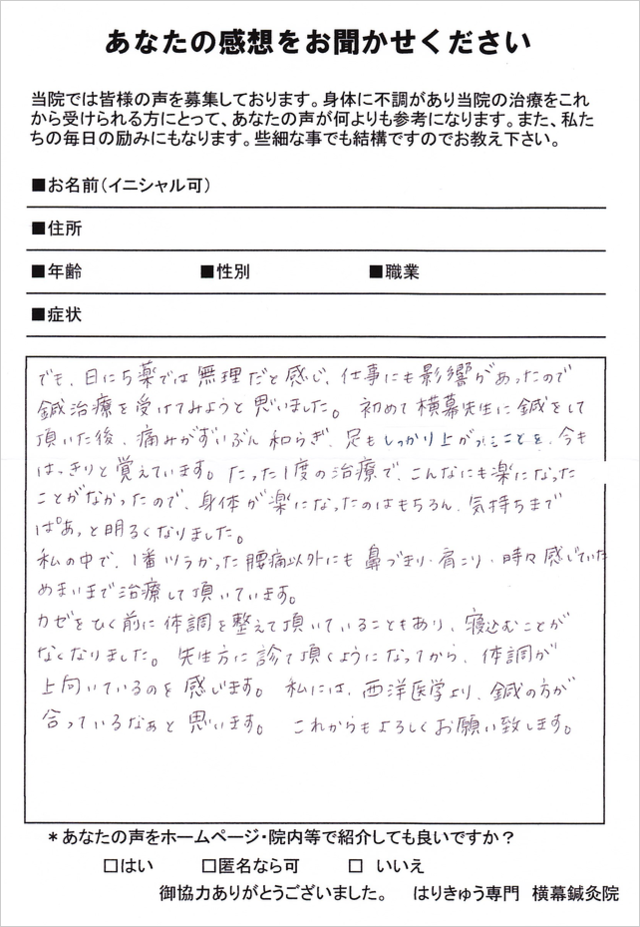 あなたの感想をお聞かせください
当院では皆様の声を募集しております。身体に不調があり当院の治療をこれ
から受けられる方にとって、あなたの声が何よりも参考になります。また、私た
ちの毎日の励みにもなります。些細な事でも結構ですのでお教え下さい。
■お名前(イニシャル可)
■住所
■年齢 ■性別 ■職業
■症状
でも、日にち薬では無理だと感じ、仕事にも影響があったので
鍼治療を受けてみようと思いました。初めて横幕先生に鍼をして
頂いた後、痛みがずいぶん和らぎ、足もしっかり上がったことを、今も
はっきりと覚えています。たった1度の治療で、こんなにも楽になった
ことがなかったので、身体が楽になったのはもちろん、気持ちまで
ぱぁっと明るくなりました。
私の中で、1番ツラかった腰痛以外にも鼻づまり・肩こり・時々感じていた
めまいまで治療して頂いています。
カゼをひく前に体調を整えて頂いていることもあり、寝込むことが
なくなりました。先生方に診て頂くようになってから、体調が
上向いているのを感じます。私には、西洋医学より、鍼の方が
合っているなぁと思います。これからもよろしくお願い致します。
＊あなたの声をホームページ・院内等で紹介しても良いですか？
□はい □匿名なら可 □ いいえ
御協力ありがとうございました。 はりきゅう専門 横幕鍼灸院